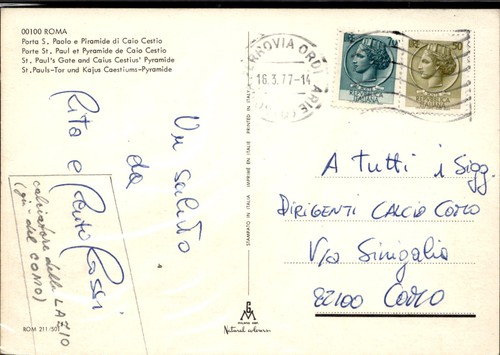 00100 ROMA
Porta S. Paolo e Piramide di Caio Cestio
Porte St. Paul et Pyramide de Caio Cestio
St. Paul's Gate and Caius Cestius' Pyramide
St. Pauls-Tor und Kajus Caestiums-Pyramide
Un saluto
da
Rita e Renzo Rossi
calciatore della LAZIO
(già del COMO)
ROM 211/501
STAMPATO IN ITALIA IMPRIMÉ EN ITALIE PRINTED IN ITALY
Natural colours
FERROVIA ORD
16.3.77-14
50
A Tutti i Sigg.
DIRIGENTI CALCIO COMO
Via Sinigalia
22100 COMO